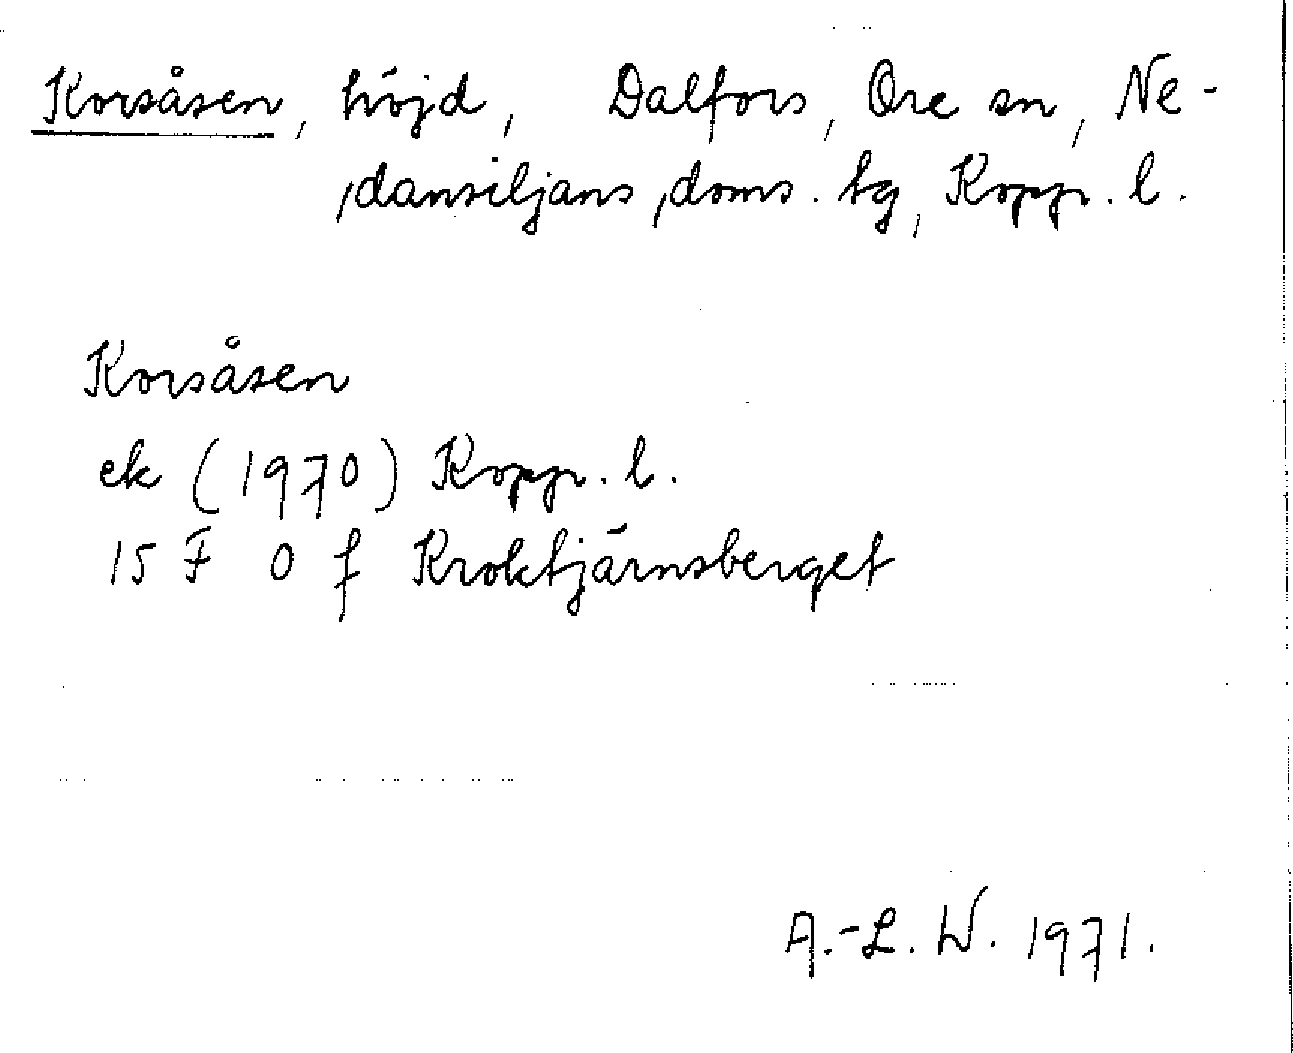 Korsåsen, höjd, Dalfors, Ore sn, Ne-
dansiljans doms. tg, Kopp. l.
Korsåsen
ek (1970) Kopp. l.
15 F 0 f Kroktjärnsberget
A.-L. W. 1971.